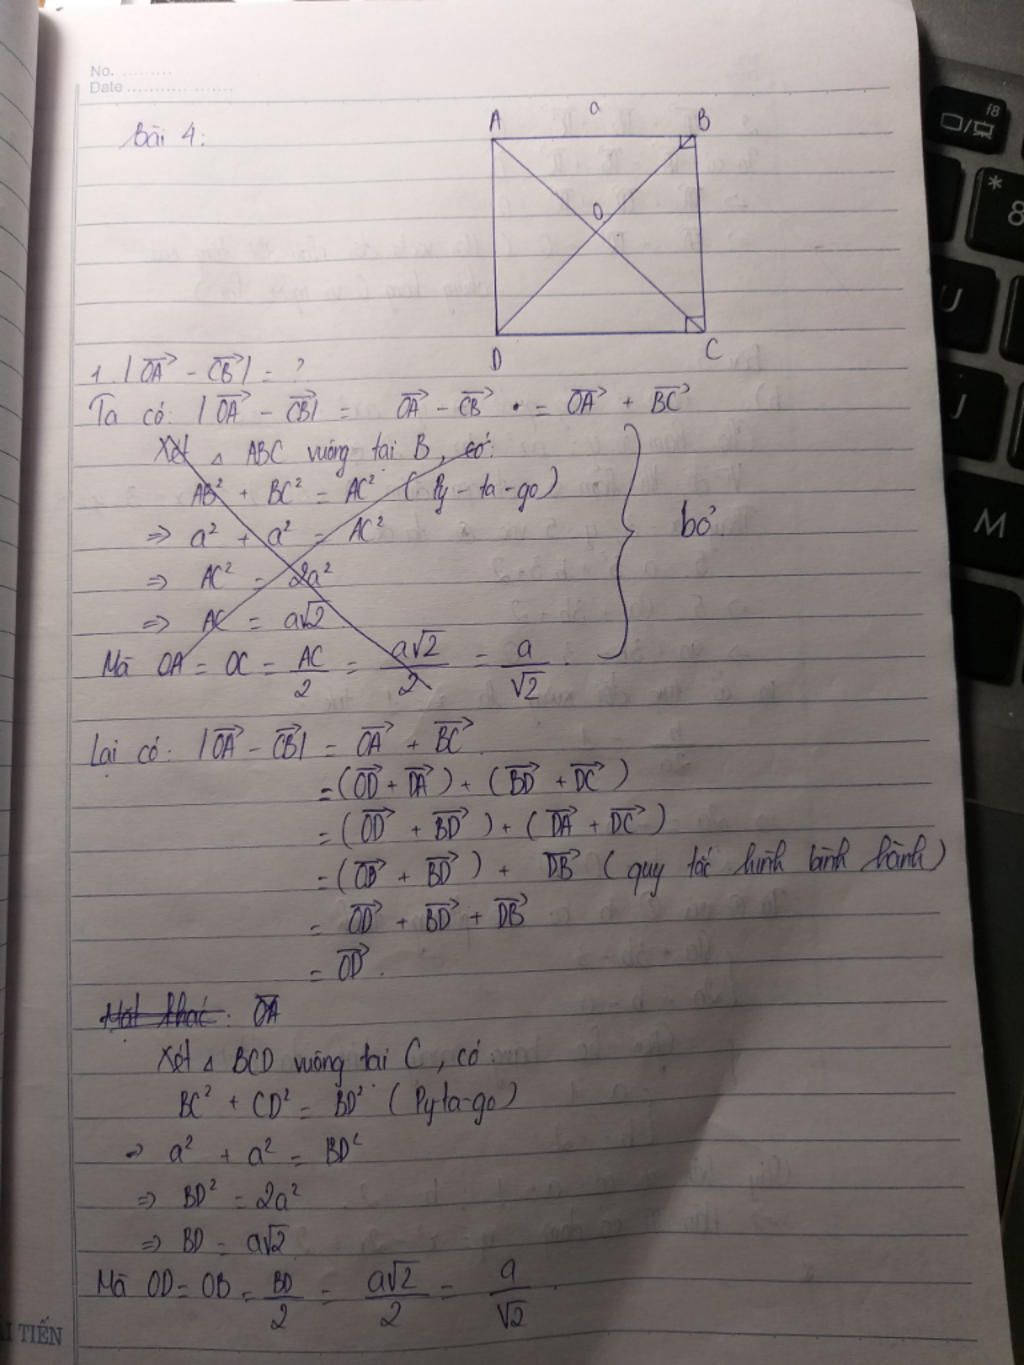 No. ..........
Date ....................
Bài 4:
a
A
B
O
D
C
1. |OA→ - CB→| = ?
Ta có: |OA→ - CB→| = OA→ - CB→ = OA→ + BC→
Xét △ ABC vuông tại B, có:
AB² + BC² = AC² (Py-ta-go)
⇒ a² + a² = AC²
⇒ AC² = 2a²
⇒ AC = a√2
Mà OA = OC = AC/2 = a√2/2 = a/√2.
bỏ.
Lại có: |OA→ - CB→| = OA→ + BC→.
= (OD→ + DA→) + (BD→ + DC→)
= (OD→ + BD→) + (DA→ + DC→)
= (OD→ + BD→) + DB→ (quy tắc hình bình hành)
= OD→ + BD→ + DB→
= OD→.
Mặt khác: OA→
Xét △ BCD vuông tại C, có
BC² + CD² = BD² (Pyta-go)
⇒ a² + a² = BD²
⇒ BD² = 2a²
⇒ BD = a√2
Mà OD = OB = BD/2 = a√2/2 = a/√2.
TIẾN
8
f8
*
8
U
J
M